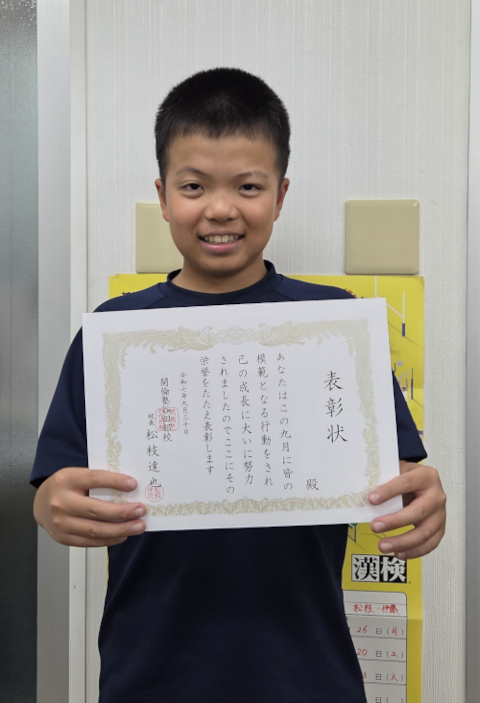 表彰状
殿
あなたはこの九月に皆の
模範となる行動をされ
己の成長に大いに努力
されましたのでここにその
栄誉をたたえ表彰します
令和七年九月三十日
開倫塾
校
校長 松枝達也
漢検
松枝・伊藤
26日(月)
20日(土)
日(火)
日(